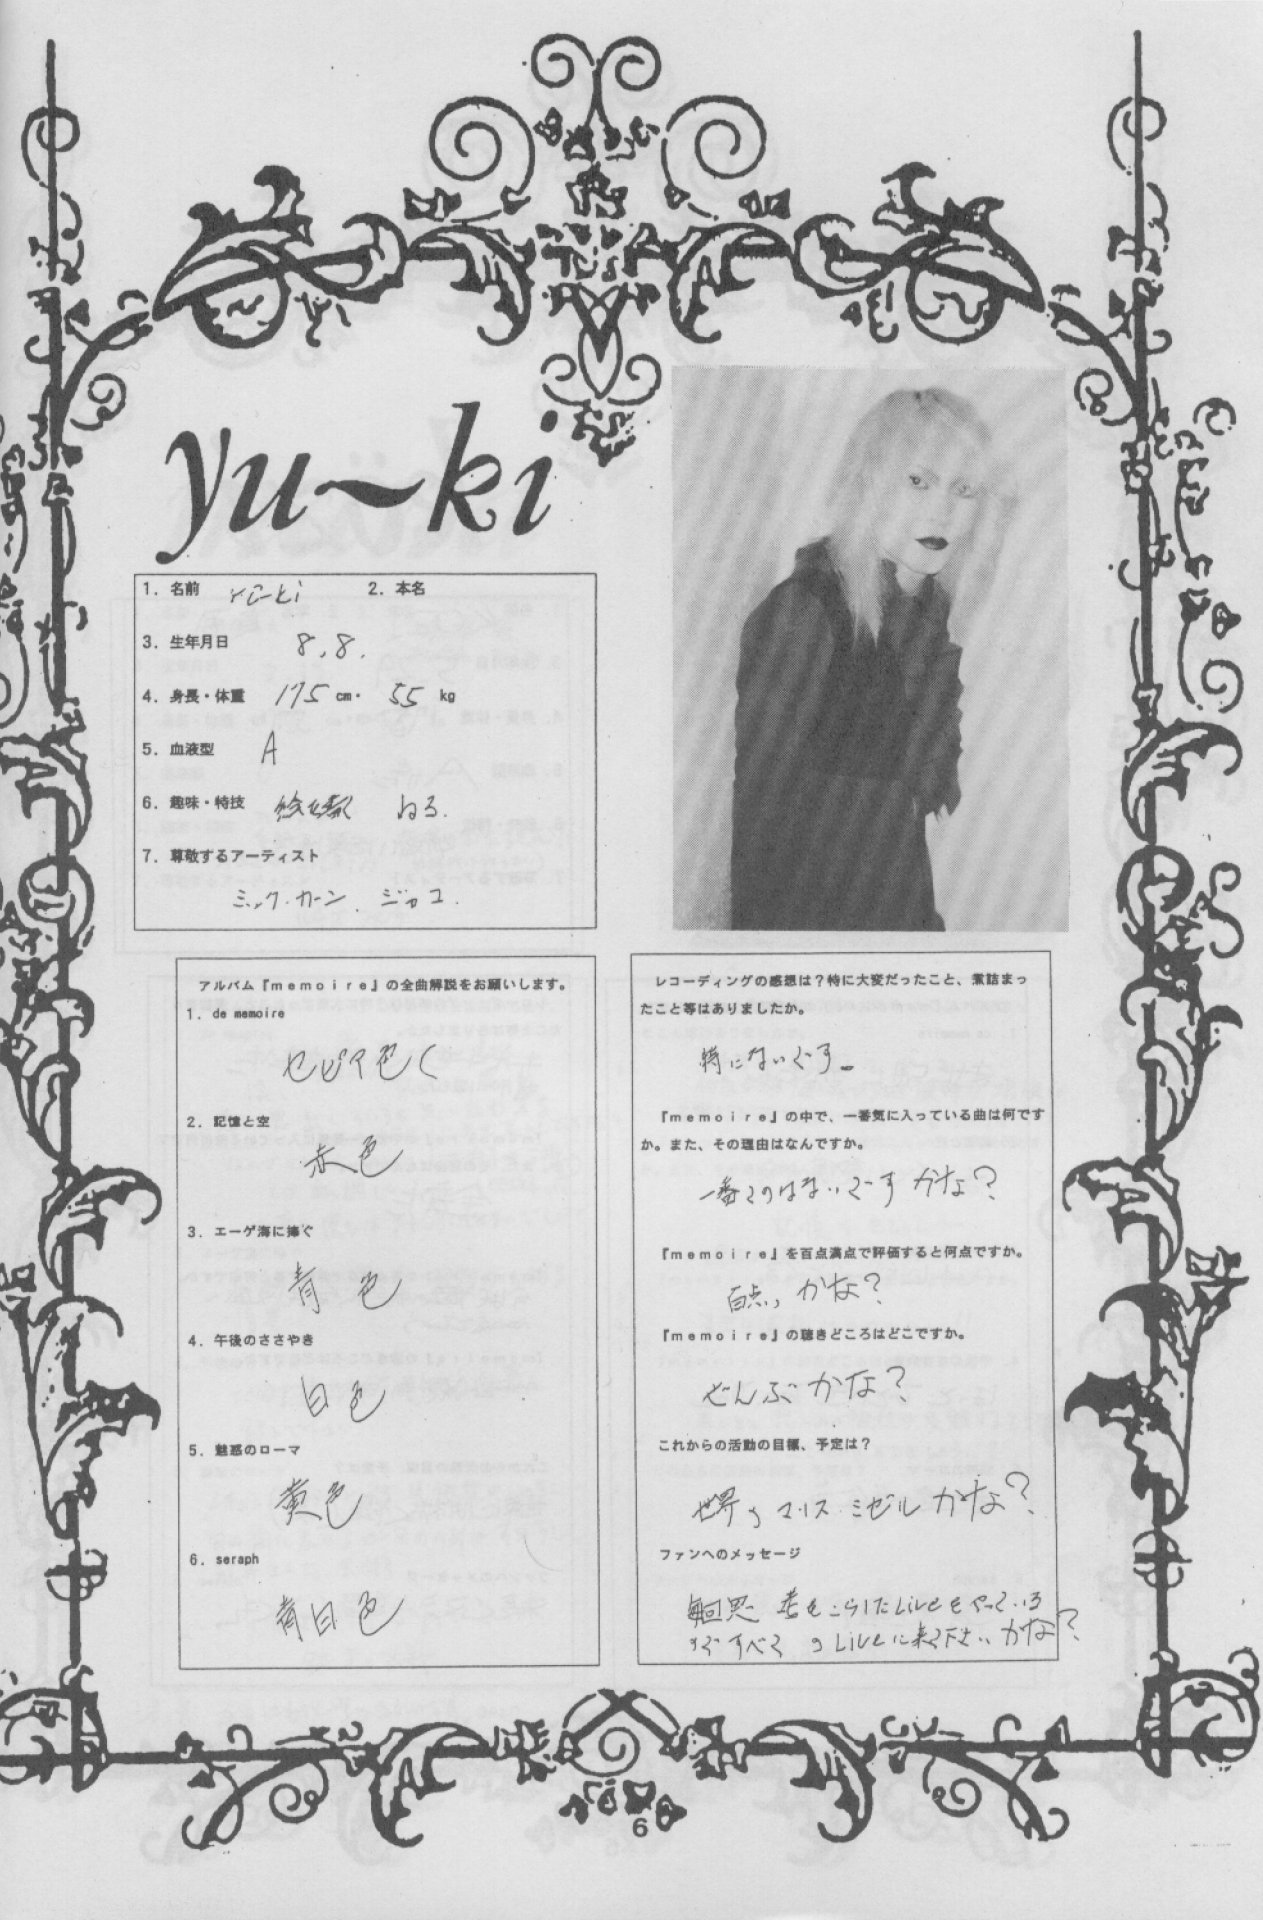 yu~ki
1. 名前 yu-ki 2. 本名
3. 生年月日 8.8.
4. 身長・体重 175 cm・ 55 kg
5. 血液型 A
6. 趣味・特技 ねる.
7. 尊敬するアーティスト
ミック・カーン. ジャコ.
アルバム『memoire』の全曲解説をお願いします。
1. de memoire
セピア色
2. 記憶と空
赤色
3. エーゲ海に捧ぐ
青色
4. 午後のささやき
白色
5. 魅惑のローマ
黄色
6. seraph
青白色
レコーディングの感想は?特に大変だったこと、煮詰まっ
たこと等はありましたか。
特にないでーす
『memoire』の中で、一番気に入っている曲は何です
か。また、その理由はなんですか。
一番てのはないでーす かな?
『memoire』を百点満点で評価すると何点ですか。
百点, かな?
『memoire』の聴きどころはどこですか。
ぜんぶ かな?
これからの活動の目標、予定は?
世界の マリス・ミゼル かな?
ファンへのメッセージ
毎回思 をこらしたLiveをやっている
ので すべて のLiveに来て下さい かな?
6